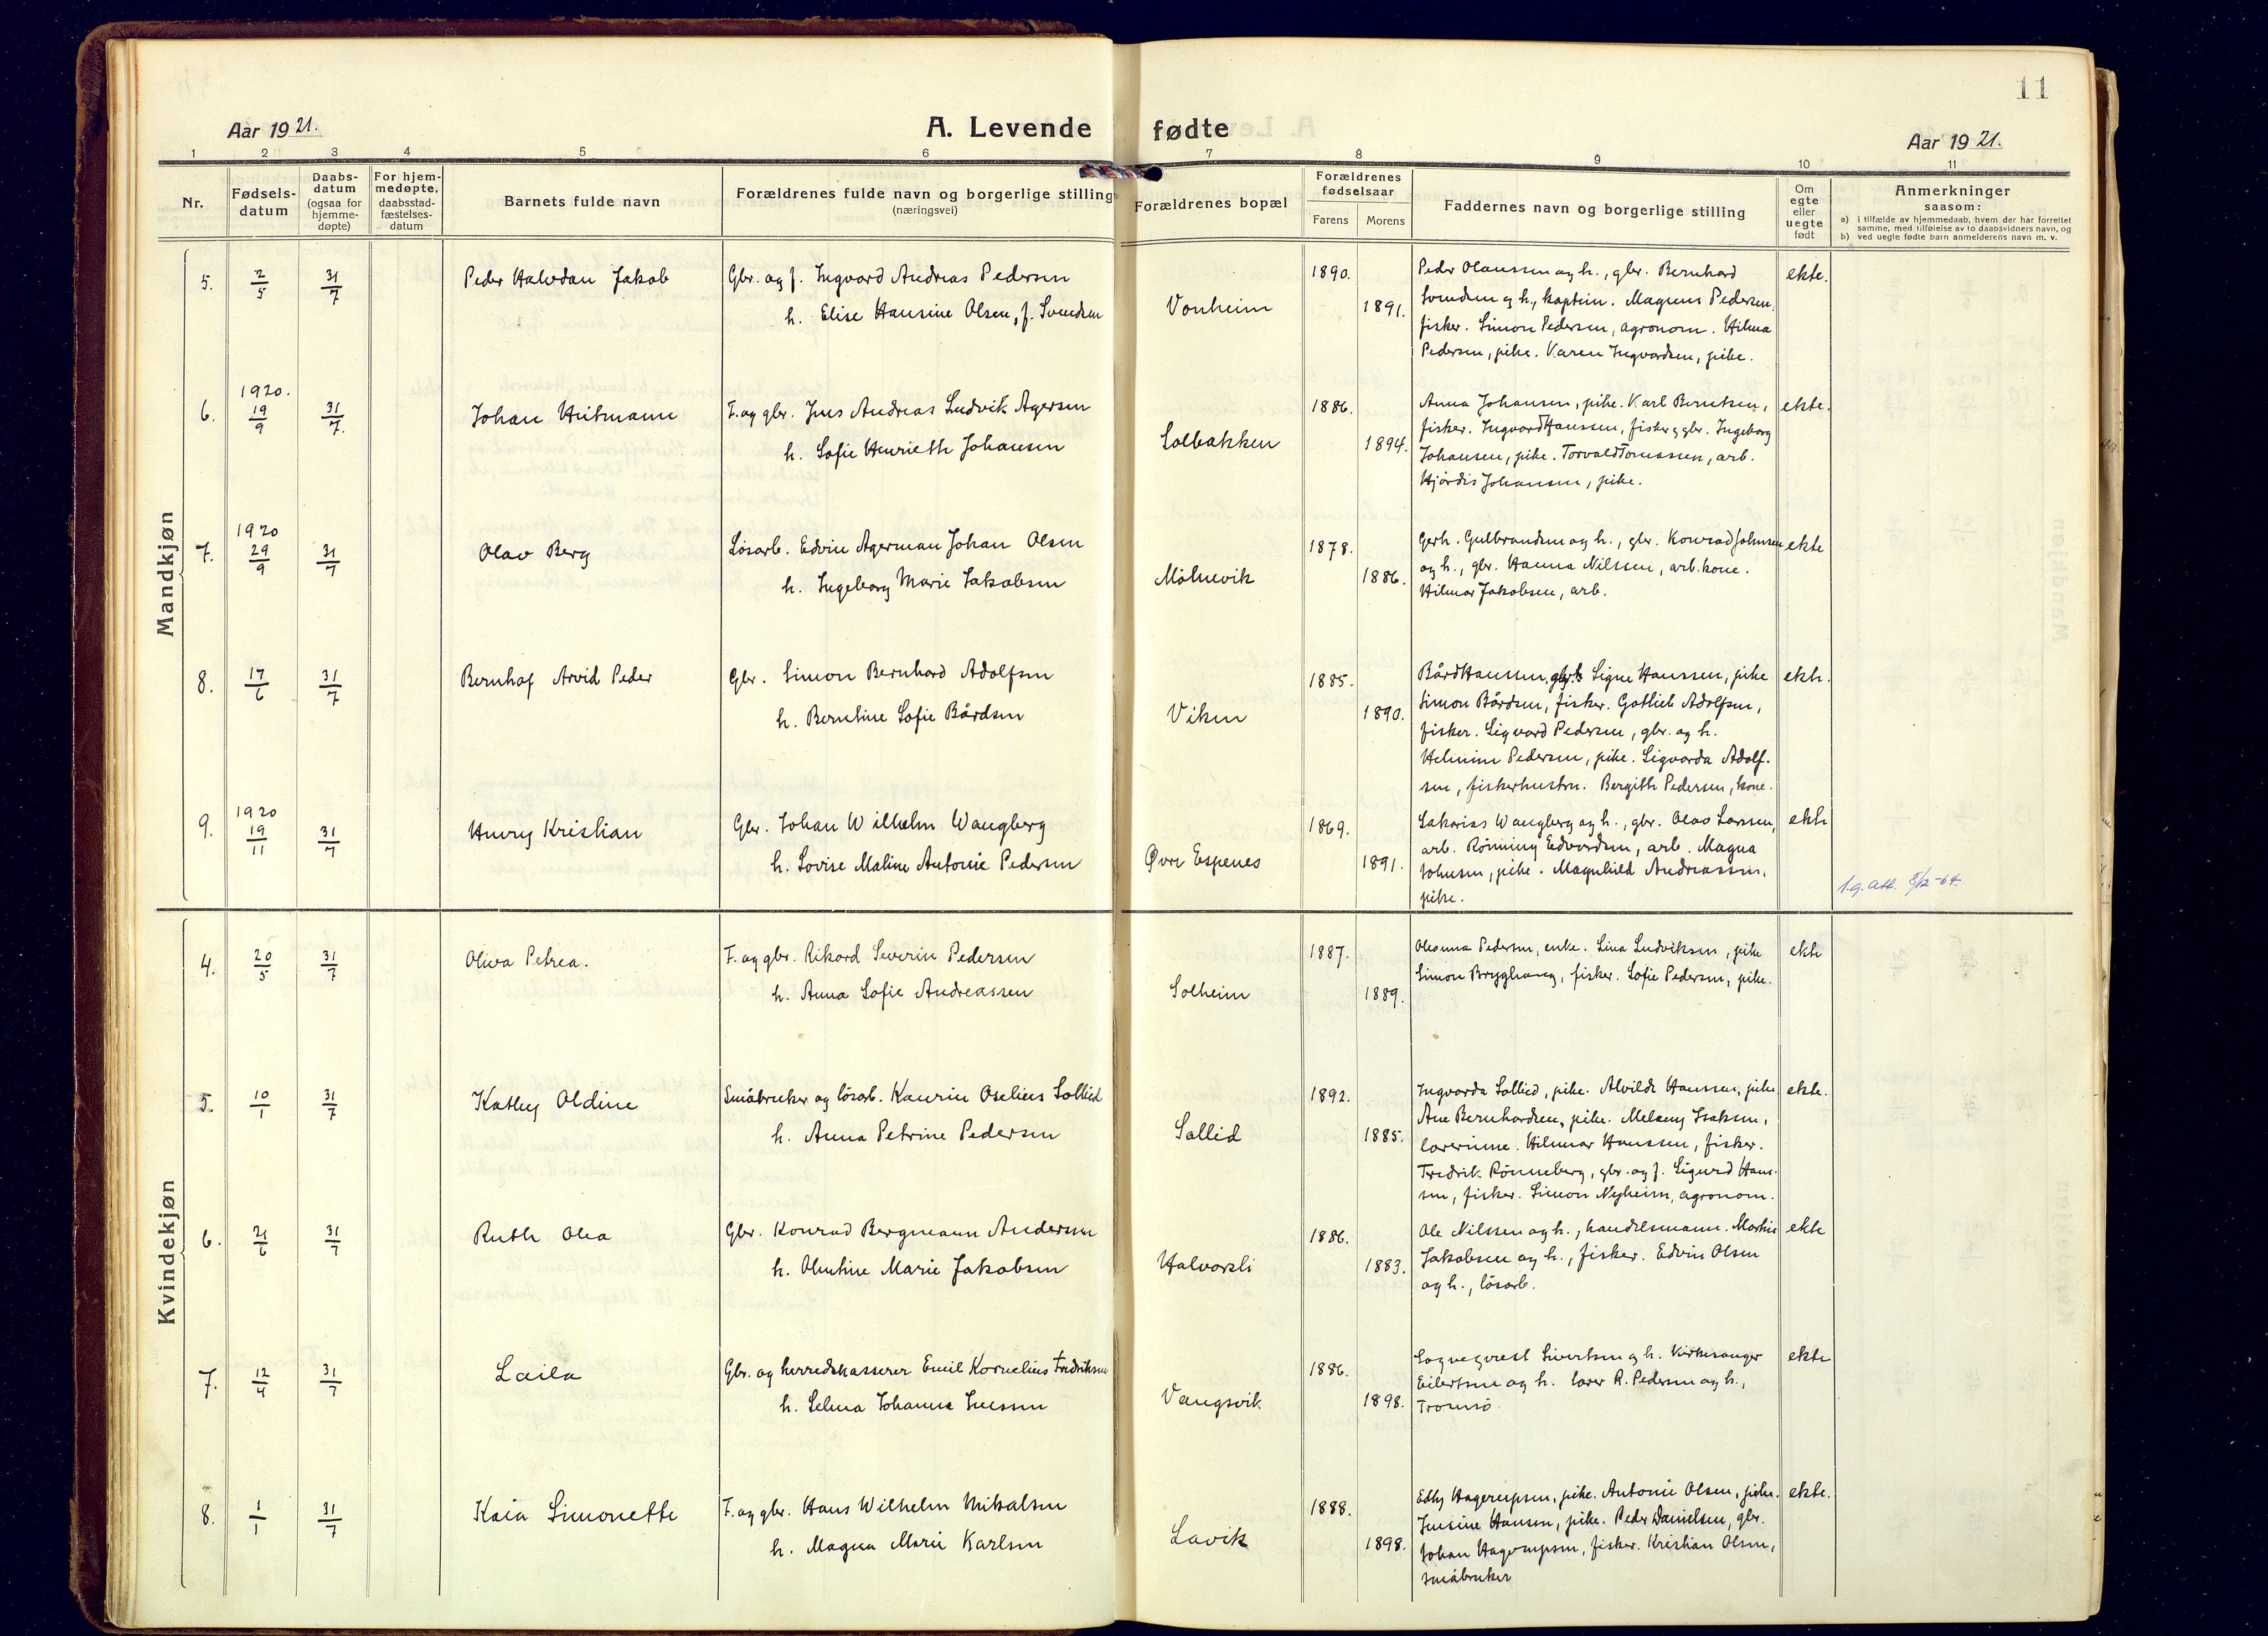 11
Aar 1921.
A. Levende fødte
Aar 1921.
1 2 3 4 5 6 7 8 9 10 11
Nr.
Fødsels-
datum
Daabs-
datum
(ogsaa for
hjemme-
døpte)
For hjem-
medøpte,
daabsstad-
fæstelses-
datum
Barnets fulde navn
Forældrenes fulde navn og borgerlige stilling
(næringsvei)
Forældrenes bopæl
Forældrenes
fødselsaar
Farens Morens
Faddernes navn og borgerlige stilling
Om
egte
eller
uegte
født
Anmerkninger
saasom:
a) i tilfælde av hjemmedaab, hvem der har forrettet
samme, med tilføielse av to daabsvidners navn, og
b) ved uegte fødte barn anmelderens navn m. v.
Mandkjøn
5. 2/5 31/7 Peder Halvdan Jakob
Gbr. og f. Ingvard Andreas Pedersen
h. Elise Hansine Olsen, f. Svendsen
Vonheim
1890.
1891.
Peder Olaussen og h., gbr. Bernhard
Svendsen og h., kaptein. Magnus Pedersen,
fisker. Simon Pedersen, agronom. Hilma
Pedersen, pike. Karen Ingvardsen, pike.
ekte.
6. 1920. 19/9 31/7. Johan Hitmann
F. og gbr. Jens Andreas Ludvik Agersen
h. Sofie Henriette Johansen
Solbakken
1886.
1894.
Anna Johansen, pike. Karl Berntsen,
fisker. Ingvard Hanssen, fisker og gbr. Ingeborg
Johansen, pike. Torvald Tomassen, arb.
Hjördis Johansen, pike.
ekte.
7. 1920 29/9 31/7 Olav Berg
Løsarb. Edvin Agerman Johan Olsen
h. Ingeborg Marie Jakobsen
Mølnevik
1878.
1886.
Gerh. Gulbrandsen og h., gbr. Konrad Johnsen
og h., gbr. Hanna Nilssen, arb.kone.
Hilmar Jakobsen, arb.
ekte
8. 17/6 31/7 Bernhof Arvid Peder
Gbr. Simon Bernhard Adolfsen
h. Berntine Sofie Bårdsen
Viken
1885.
1890.
Bård Hanssen, gbr. Signe Hanssen, pike
Simon Bårdsen, fisker. Gotlieb Adolfsen,
fisker. Sigvard Pedersen, gbr. og h.
Helmine Pedersen, pike. Sigvarda Adolf-
sen, fiskerhustru. Bergith Pedersen, kone.
ekte.
9. 1920 19/11 31/7 Henry Kristian
Gbr. Johan Wilhelm Wangberg
h. Lovise Maline Antonie Pedersen
Øvre Espenes
1869.
1891.
Sakarias Wangberg og h., gbr. Olav Larssen,
arb. Rönning Edvardsen, arb. Magna
Johnsen, pike. Magnhild Andreassen,
pike.
ekte
f.g. att. 8/12-64.
Kvindekjøn
4. 20/5 31/7 Oliva Petrea.
F. og gbr. Rikard Severin Pedersen
h. Anna Sofie Andreassen
Solheim
1887.
1889.
Oleanna Pedersen, enke. Lina Ludviksen, pike
Simon Brygghaug, fisker. Sofie Pedersen, pike.
ekte
5. 10/1 31/7 Kathy Oldine
Småbruker og lösarb. Kaurin Oselius Sollied
h. Anna Petrine Pedersen
Sollid
1892.
1885.
Ingvarda Sollied, pike. Alvilde Hanssen, pike
Ane Bernhardsen, pike. Melseny Isaksen,
lærerinne. Hilmar Hanssen, fisker.
Fredrik Rönneberg, gbr. og f. Sigurd Hans-
sen, fisker. Simon Nyheim, agronom.
ekte.
6. 21/6 31/7 Ruth Olea
Gbr. Konrad Bergmann Andersen
h. Olentine Marie Jakobsen
Halvarsli
1886.
1883.
Ole Nilssen og h., handelsmann. Martin
Jakobsen og h., fisker. Edvin Olsen
og h., lösarb.
ekte
7. 12/4 31/7 Laila
Gbr. og herredskasserer Emil Kornelius Fredriksen
h. Selma Johanne Jenssen
Vangsvik
1886.
1898.
Sogneprest Sivertsen og h. Kirkesanger
Eilertsen og h. lærer R. Pedersen og h.,
Tromsö.
ekte
8. 1/1 31/7 Kaia Simonette
F. og gbr. Hans Wilhelm Mikalsen
h. Magna Marie Karlsen
Lavik
1888.
1898.
Edby Hagerupsen, pike. Antonie Olsen, pike.
Jensine Hansen, pike. Peder Danielsen, gbr.
Johan Hagerupsen, fisker. Kristian Olsen,
småbruker
ekte.